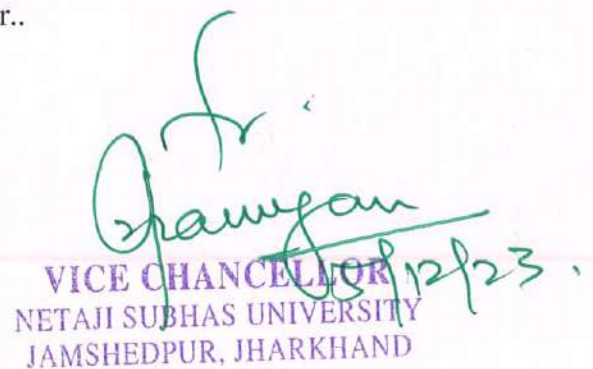 r..
Fr.
VICE CHANCELLOR
/12/23.
NETAJI SUBHAS UNIVERSITY
JAMSHEDPUR, JHARKHAND